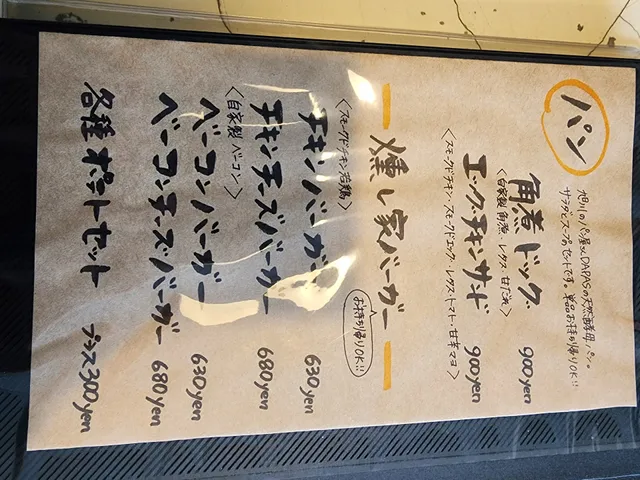 パン
旭川のパン屋さんDAPASの天然酵母パン。
サラダとスープのセットです。単品お持ち帰りOK!!
角煮ドッグ 900yen
〈自家製角煮・レタス・甘だれ〉
エッグチキンサンド 900yen
〈スモークドチキン・スモークドエッグ・レタス・トマト・甘辛マヨ〉
燻し家バーガー
お持ち帰りOK!!
〈スモークドチキン若鶏〉
チキンバーガー 630yen
チキンチーズバーガー 680yen
〈自家製ベーコン〉
ベーコンバーガー 630yen
ベーコンチーズバーガー 680yen
各種ポテトセット プラス300yen